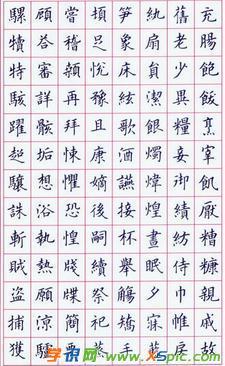 充腸飽飫烹宰飢厭糟糠親戚故
舊老少異糧妾御績紡侍巾帷房
紈扇員潔銀燭煒煌晝眠夕寐藍
笋象床絃歌酒讌接杯舉觴矯手
頓足悅豫且康嫡後嗣續祭祀蒸
嘗稽顙再拜悚懼恐惶牋牒簡要
顧答審詳骸垢想浴執熱願涼驢
騾犢特駭躍超驤誅斬賊盜捕獲
学识网 www.xspic.com